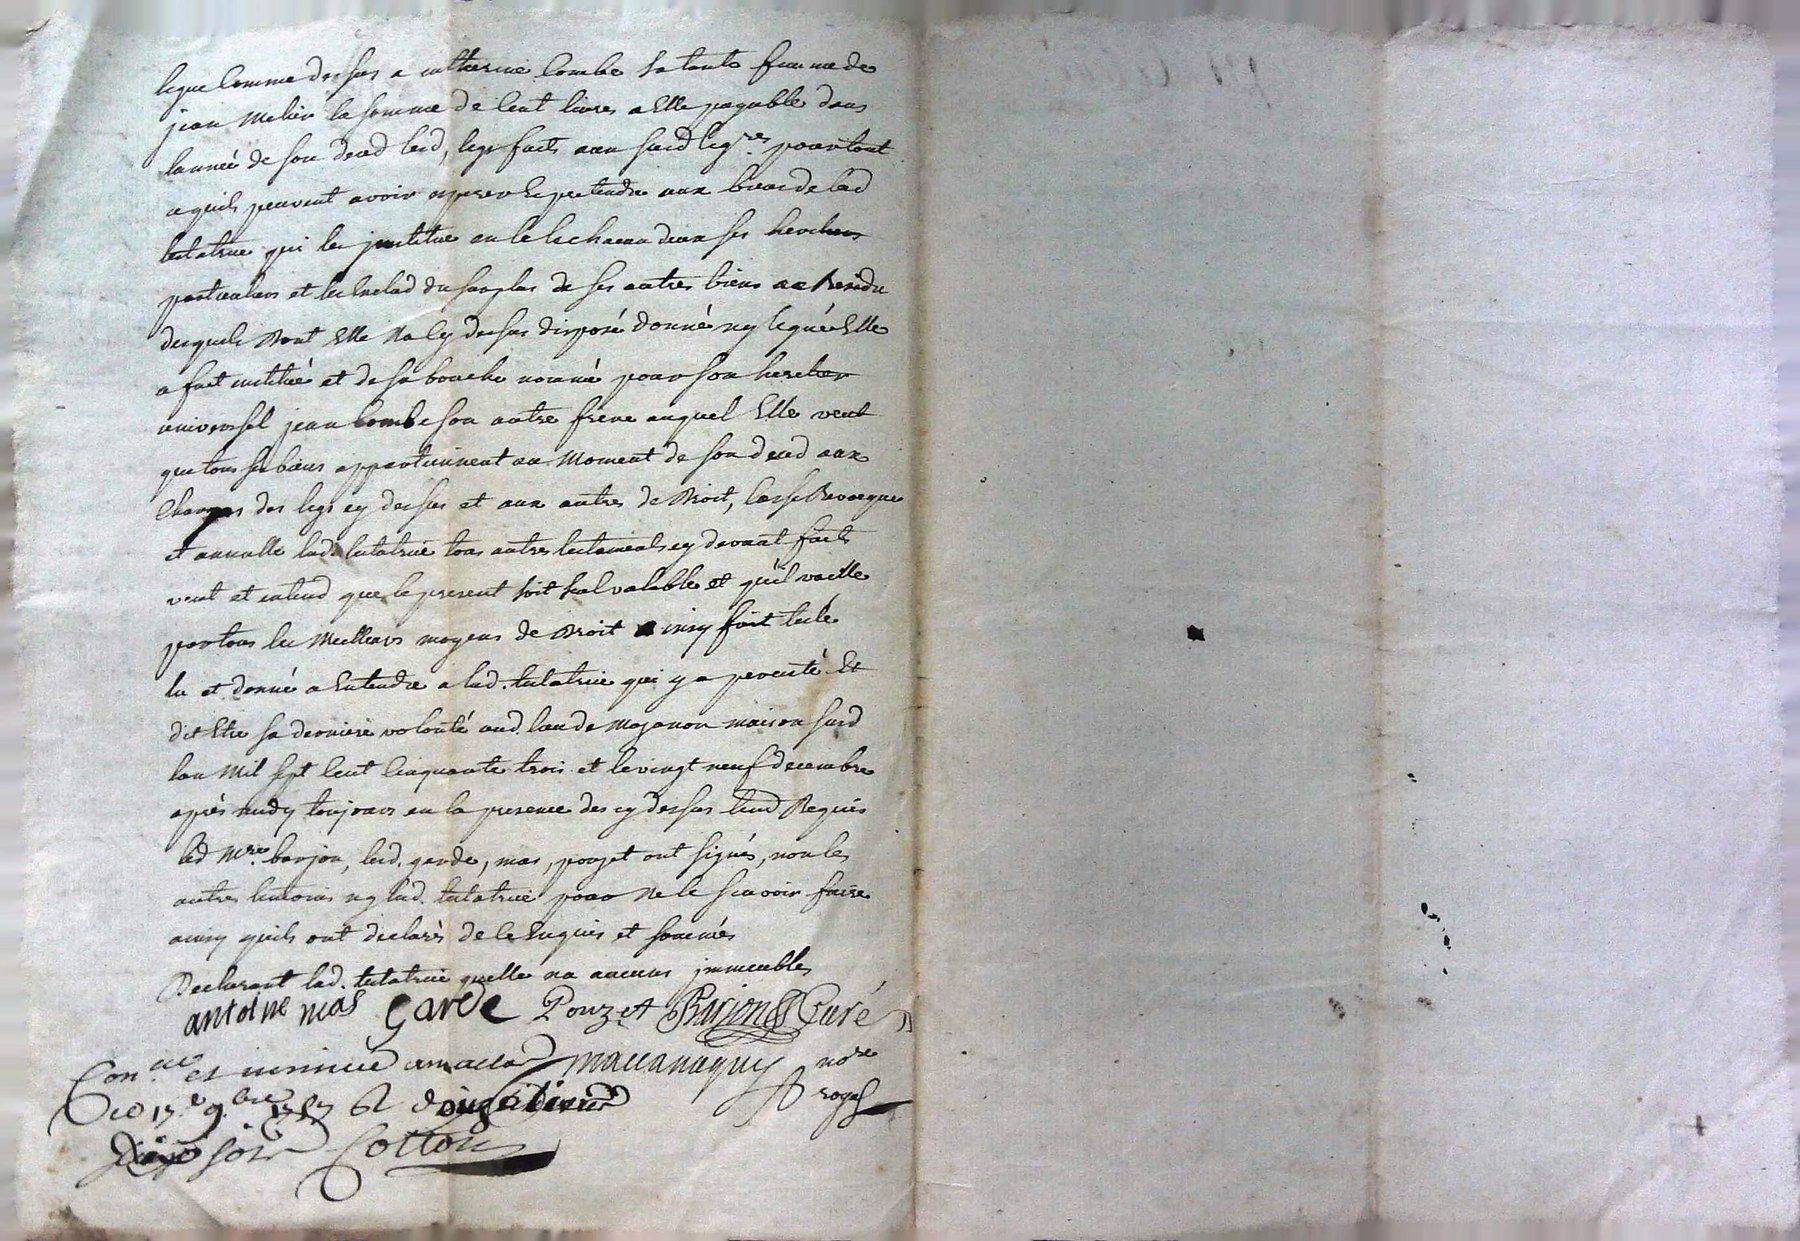 legue comme dessus a catherine Combe sa tante femme de
jean Melier la somme de Cent livres a Elle payable dans
lannée de son deced lesd, legs faits aux susd leg.res pour tout
ce quils peuvent avoir a prendre Et pretendre aux biens de lad
testatrice qui les justitue en le les chacun deux ses heritiers
particuliers et les Exclud du surplus de ses autres biens au Residu
desquels Dont Elle Na Cy dessus disposé donné ny legué Elle
a fait institué et de sa bouche nommé pour son heritier
universel jean Combe son autre frere auquel Elle veut
que tous ses biens appartiennent au Moment de son deced aux
Charges des legs cy dessus et aux autres de Droit, Casse Revoque
et annulle lad. testatrice tous autres testaments cy devant faits
veut et entend que le present soit seul valable et quil vaille
par tous les Meilleurs moyens de Droit ainsy fait testé
lu et donné a Entendre a lad. testatrice qui y a percisté Et
dit Etre sa derniere volonté aud. lieu de Mazanon maison susd
lan Mil sept Cent Cinquante trois et le vingt neuf decembre
après midy toujours en la presence des cy dessus temd Requis
led M.re barjon, lesd. garde, mas, pouzet ont signés, non les
autres temoins ny lad. testatrice pour Ne le scavoir faire
ainsy quils ont declarès de ce Enquis et sommés
Declarant lad. testatrice quelle na aucuns immeubles
antoine mas garde Pouzet Barjon Curé
Con.llé et insinué
no.re
royal
Cotton